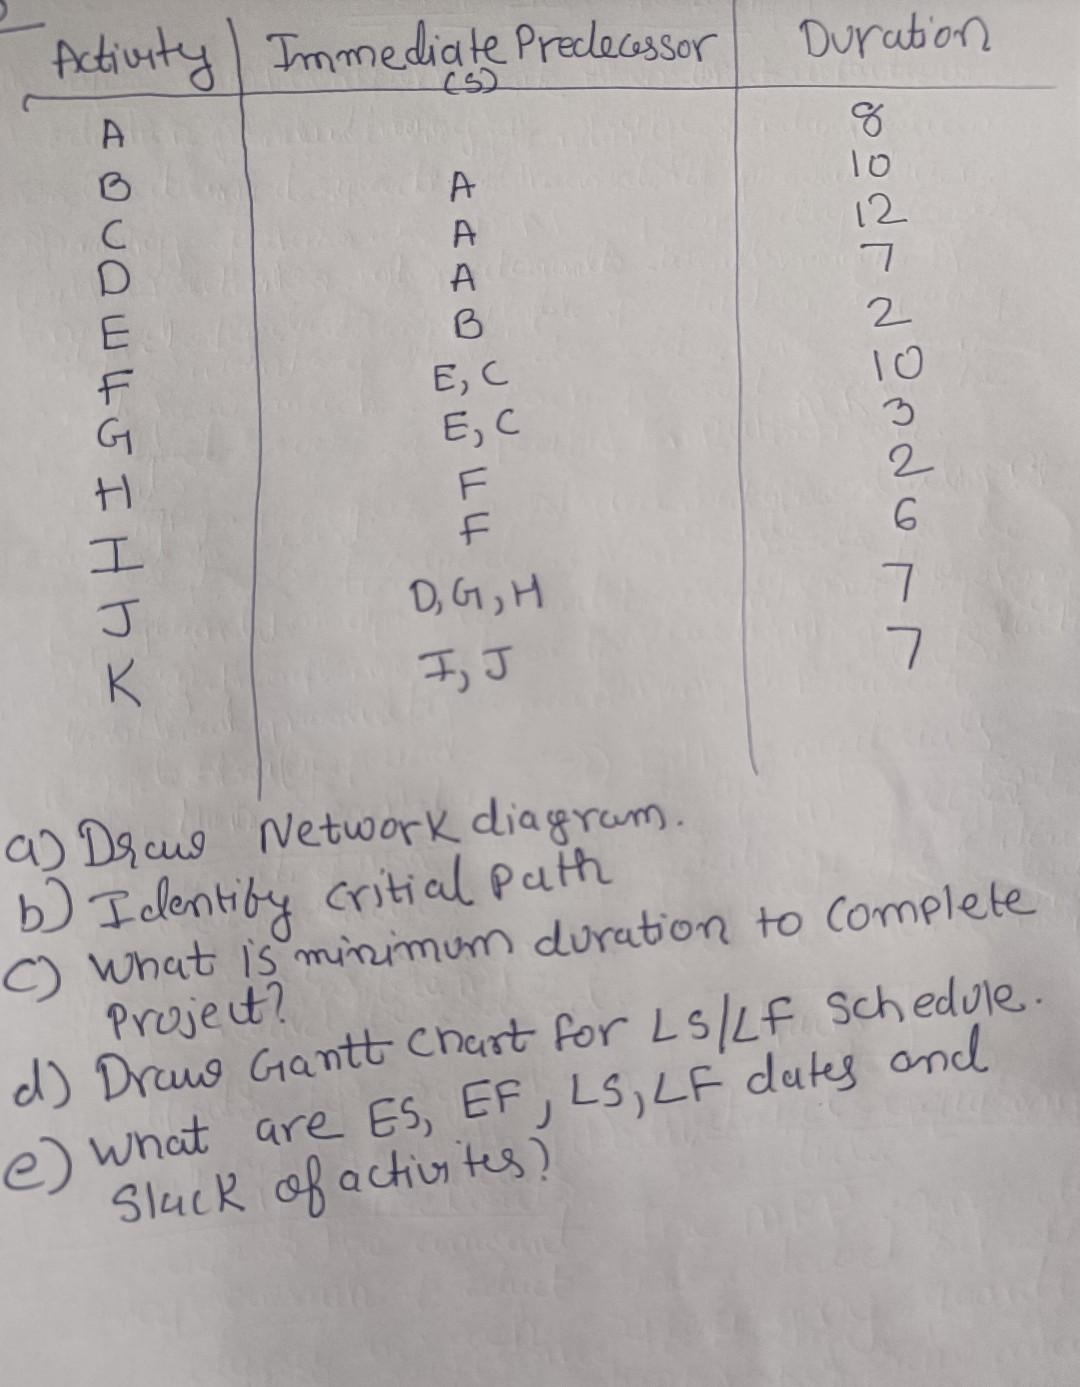 Activity Immediate Predecessor Duration
(S)
A 8
B A 10
C A 12
D A 7
E B 2
F E, C 10
G E, C 3
H F 2
I F 6
J D, G, H 7
K I, J 7
a) Draw Network diagram.
b) Identify critial path
c) What is minimum duration to complete
project?
d) Draw Gantt Chart for LS/LF Schedule.
e) What are ES, EF, LS, LF dates and
Slack of activites?